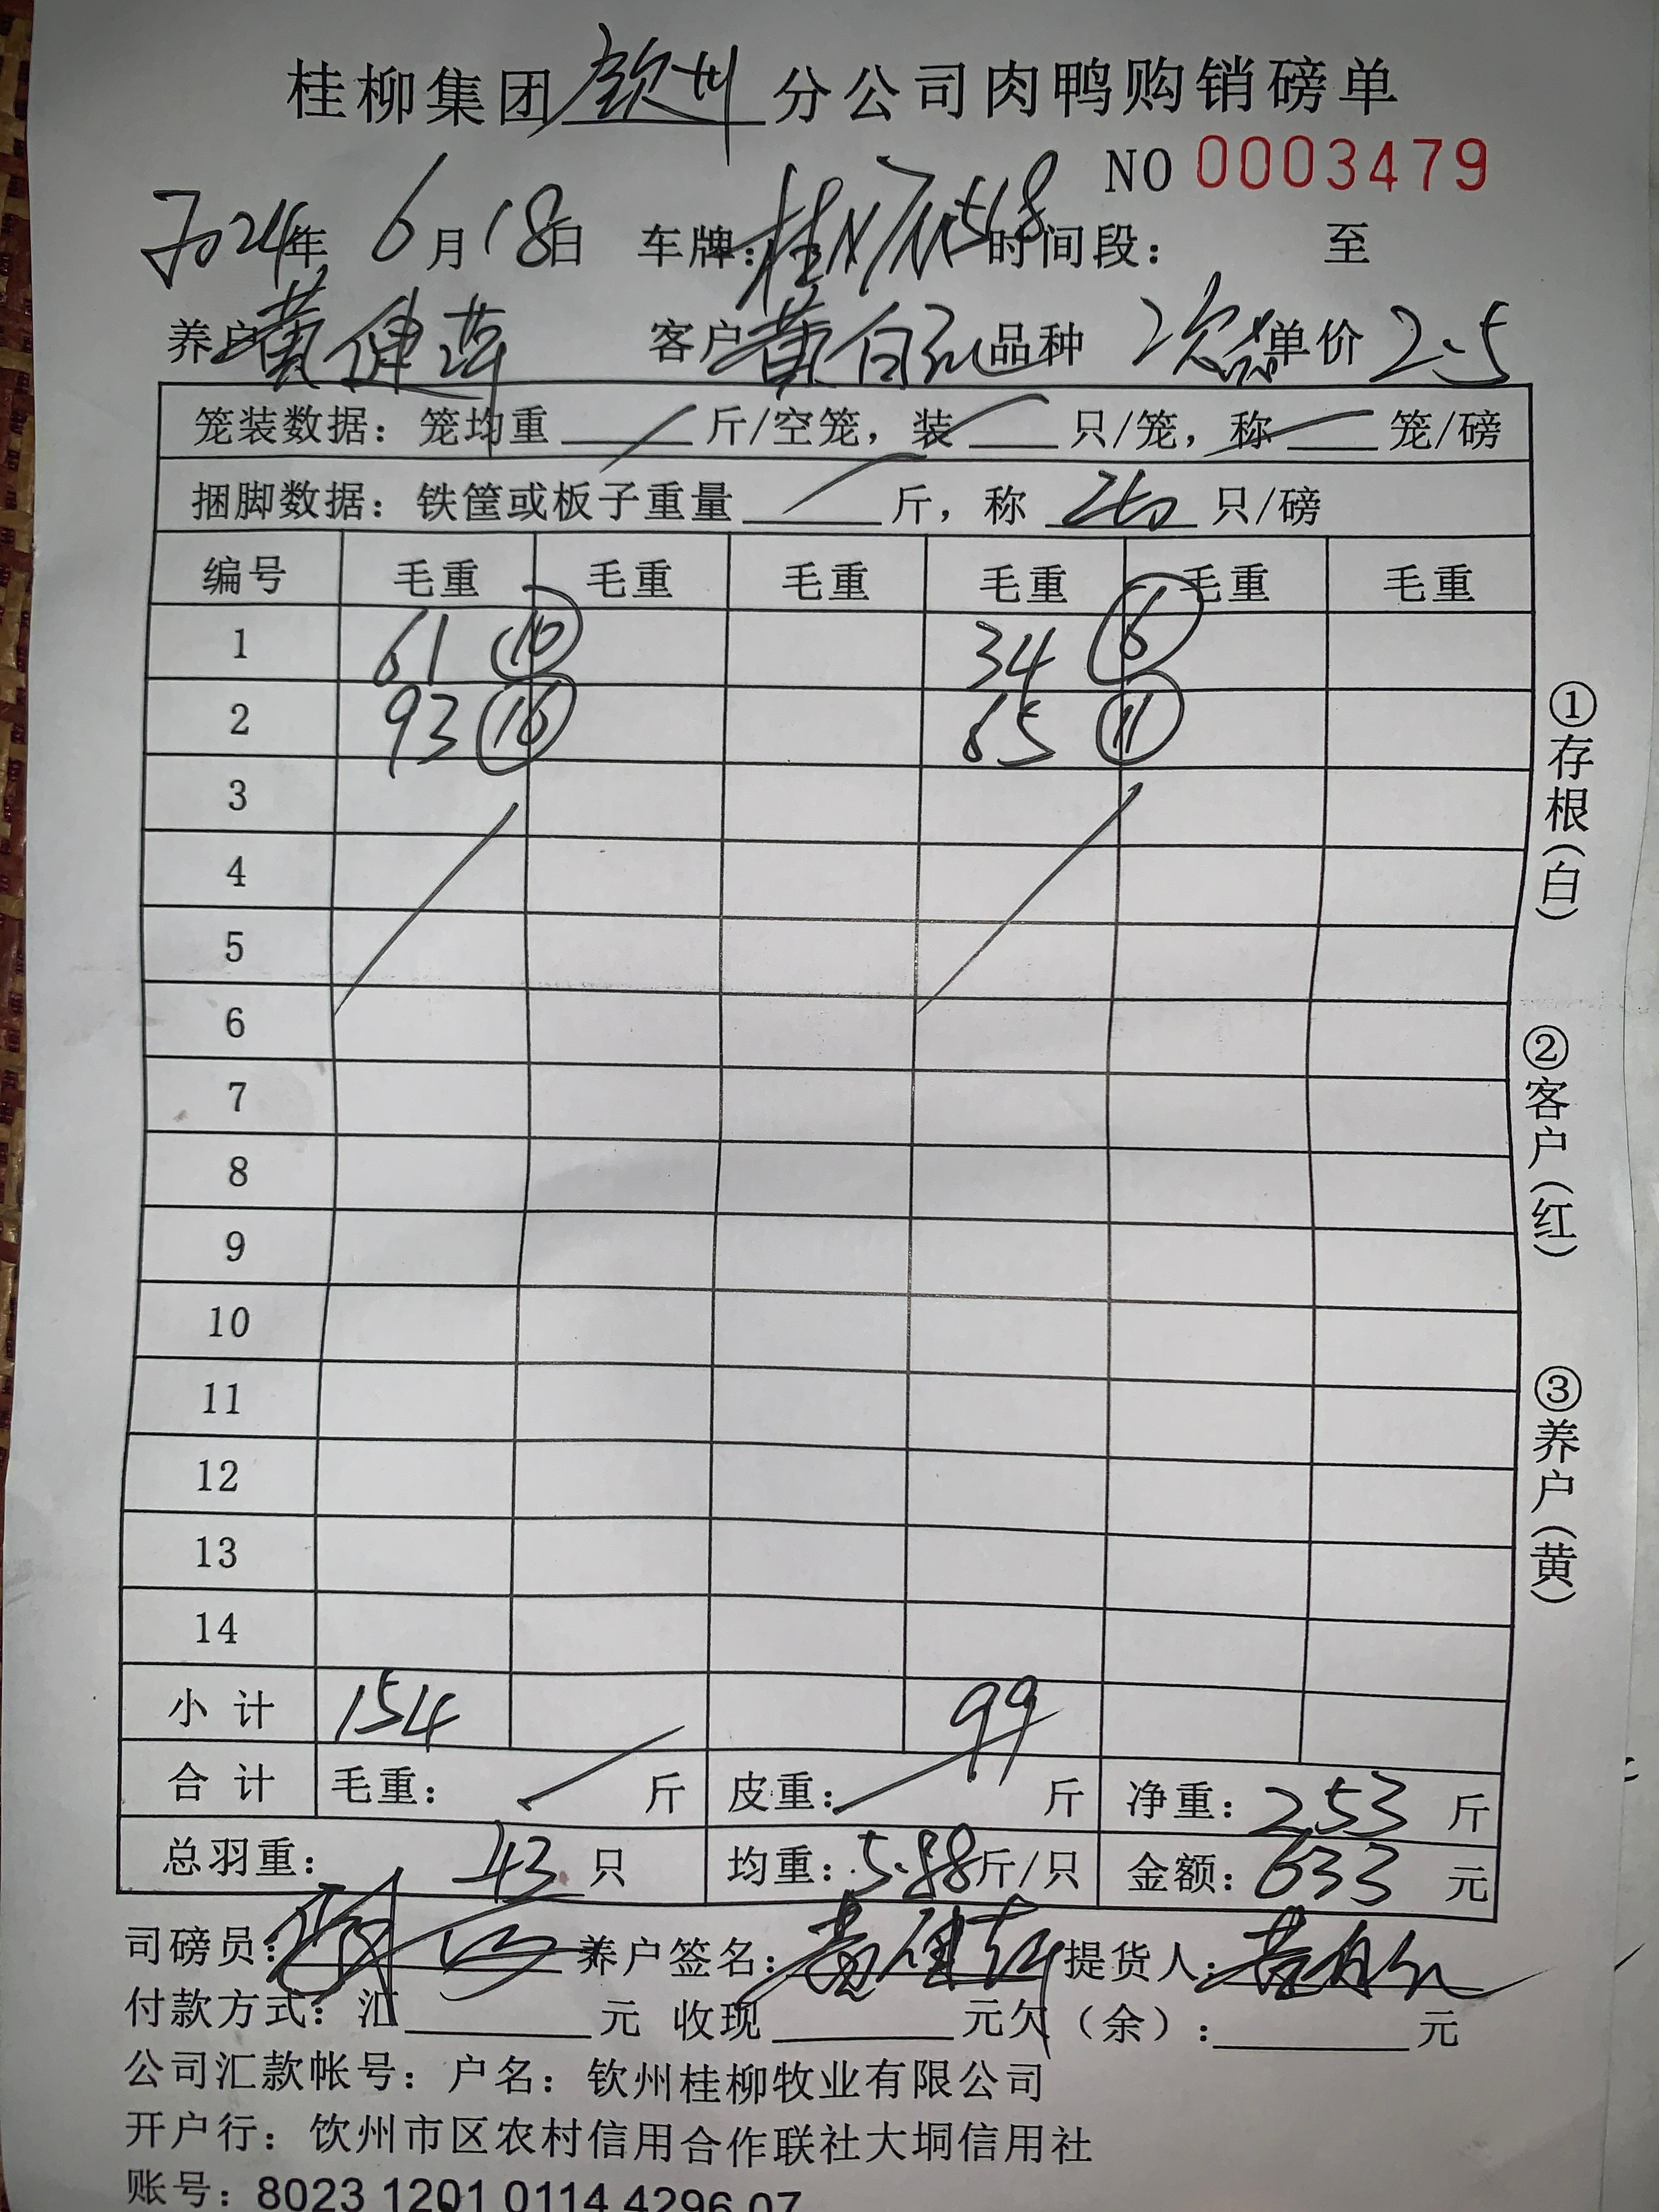 桂柳集团 钦州 分公司肉鸭购销磅单
NO 0003479
2024年 6月18日 车牌: 桂N 时间段: 至
养户 黄健 客户 黄 品种 次 单价 2.5
笼装数据: 笼均重 / 斤/空笼, 装 / 只/笼, 称 / 笼/磅
捆脚数据: 铁筐或板子重量 / 斤, 称 只/磅
编号 毛重 毛重 毛重 毛重 毛重 毛重
1 61 ⑩ 34 ⑥
2 93 ⑯ 65 ⑪
3
4
5
6
7
8
9
10
11
12
13
14
小计 154 99
合计 毛重: / 斤 皮重: / 斤 净重: 253 斤
总羽重: 43 只 均重: 5.88 斤/只 金额: 633 元
司磅员: 养户签名: 提货人:
付款方式: 汇 元 收现 元欠(余): 元
公司汇款帐号: 户名: 钦州桂柳牧业有限公司
开户行: 钦州市区农村信用合作联社大垌信用社
账号: 8023 1201 0114 4296 07
①存根(白)
②客户(红)
③养户(黄)